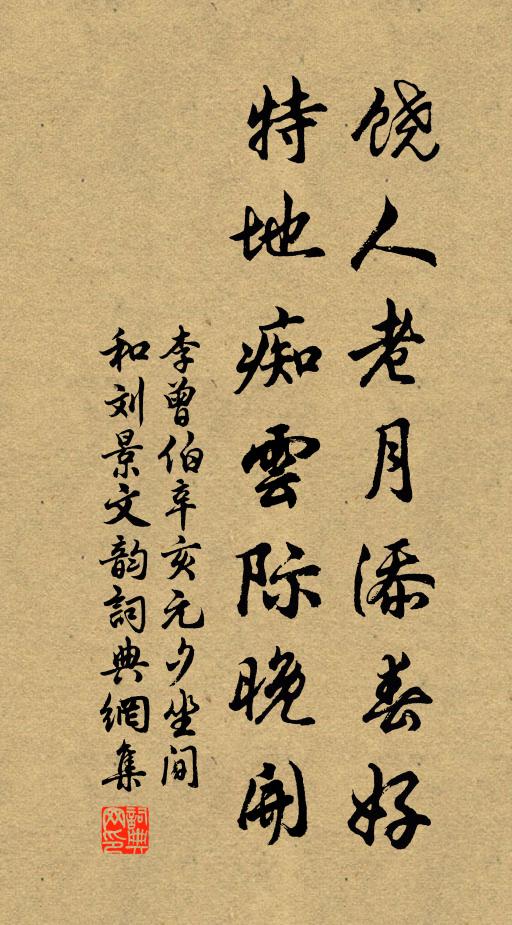 饶人老月添春好
特地痴雲际晚开
李曾伯辛亥元夕坐间
和刘景文韵詞典網集
詞典
网印